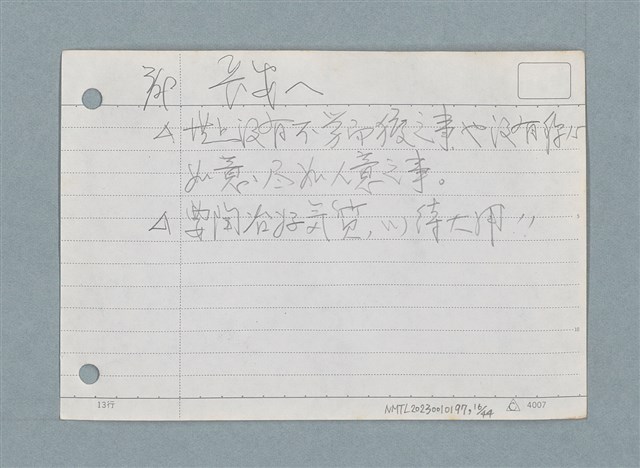 長安人
△ 世上沒有不劳而获之事,也沒有
如意、尽如人意之事。
△ 要陶冶好气質,以待大用!!
13行
NMTL20230010197, 16/44
4007